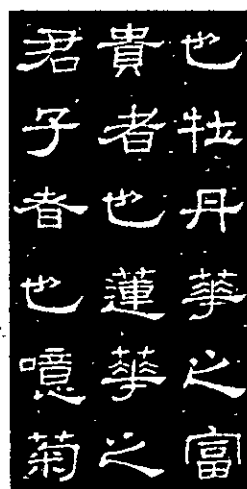 也牡丹華之富
貴者也蓮華之
君子者也噫菊